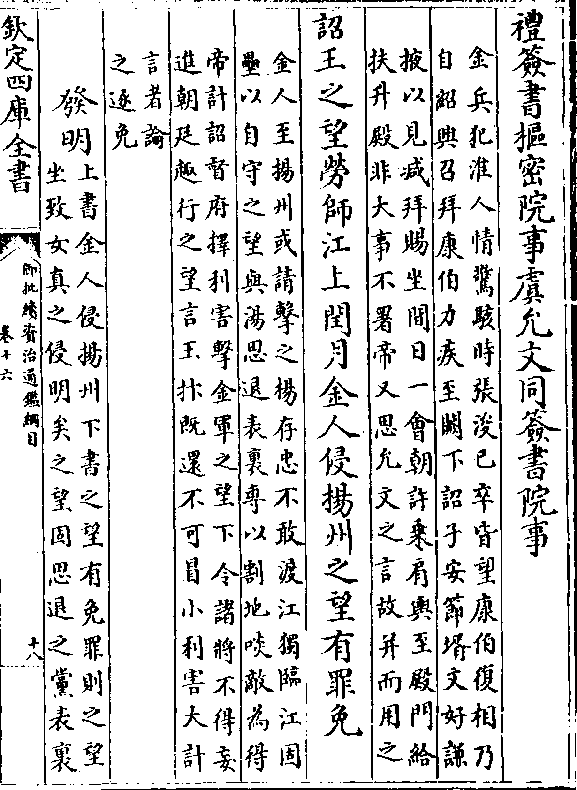 禮簽書樞密院事虞允文同簽書院事
金兵犯淮人情驚駭時張浚已卒皆望康伯復相乃
自紹興召拜康伯力疾至闕下詔子安節壻文好謙
掖以見减拜賜坐間日一會朝許乗肩輿至殿門給
扶升殿非大事不署帝又思允文之言故并而用之
詔王之望勞師江上閏月金人侵揚州之望有罪免
金人至揚州或請擊之楊存忠不敢渡江獨臨江固
壘以自守之望與湯思退表裏專以割地啖敵為得
帝計詔督府擇利害擊金軍之望下令諸將不得妄
進朝廷趣行之望言王抃既還不可冒小利害大計
言者論
之遂免
發明上書金人侵揚州下書之望有免罪則之望
坐致女真之侵明矣之望固思退之黨表裏
欽定四庫全書
御批續資治通鑑綱目
卷十六
十八